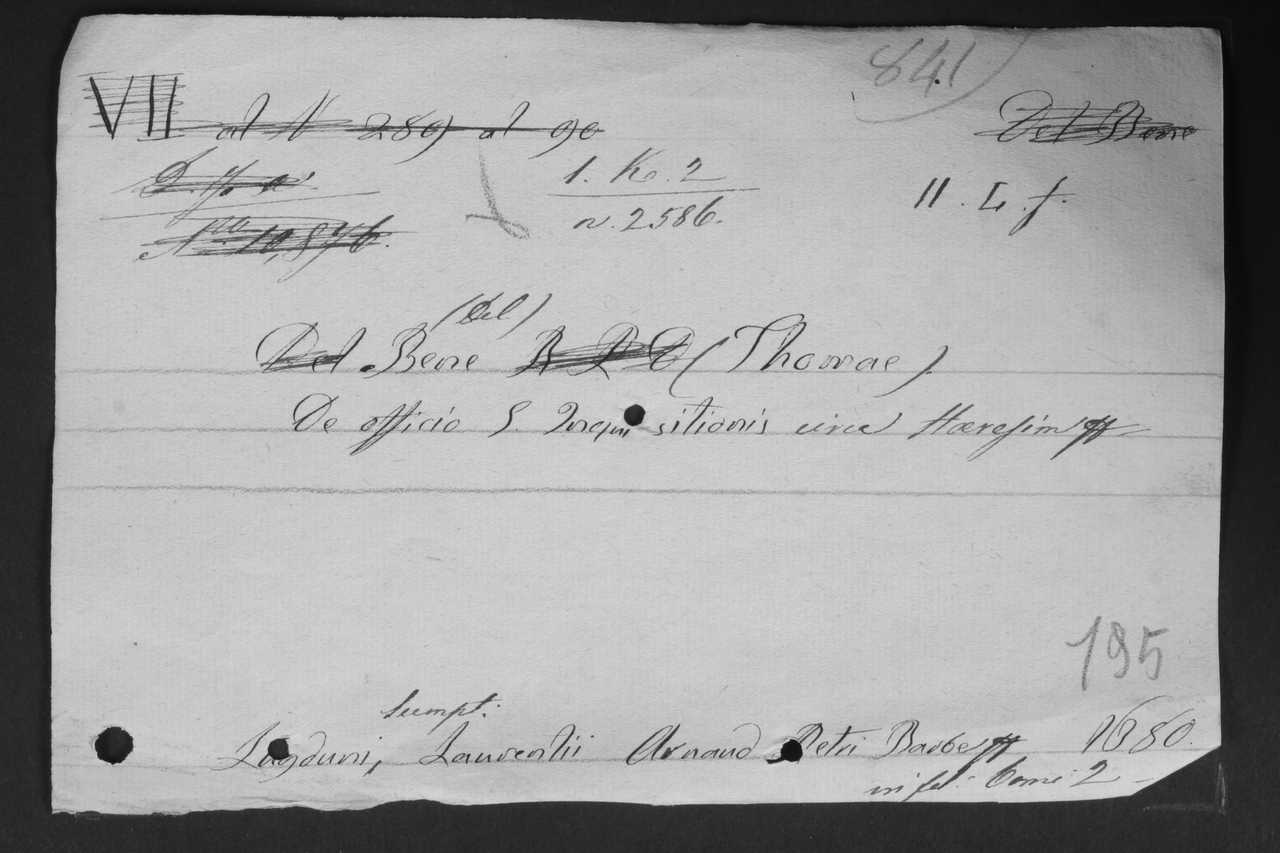 841
VII al N 289 al 90
Del Bene
1. K. 2
n. 2586.
II. L. f.
No 10,876.
(Del)
Del Bene B P D (Thomae).
De officio S. Inquisitionis circa Haeresim
195
Sumpt:
Lugduni, Laurentii Arnaud Petri Barbe 1680.
in fol: Tomi 2